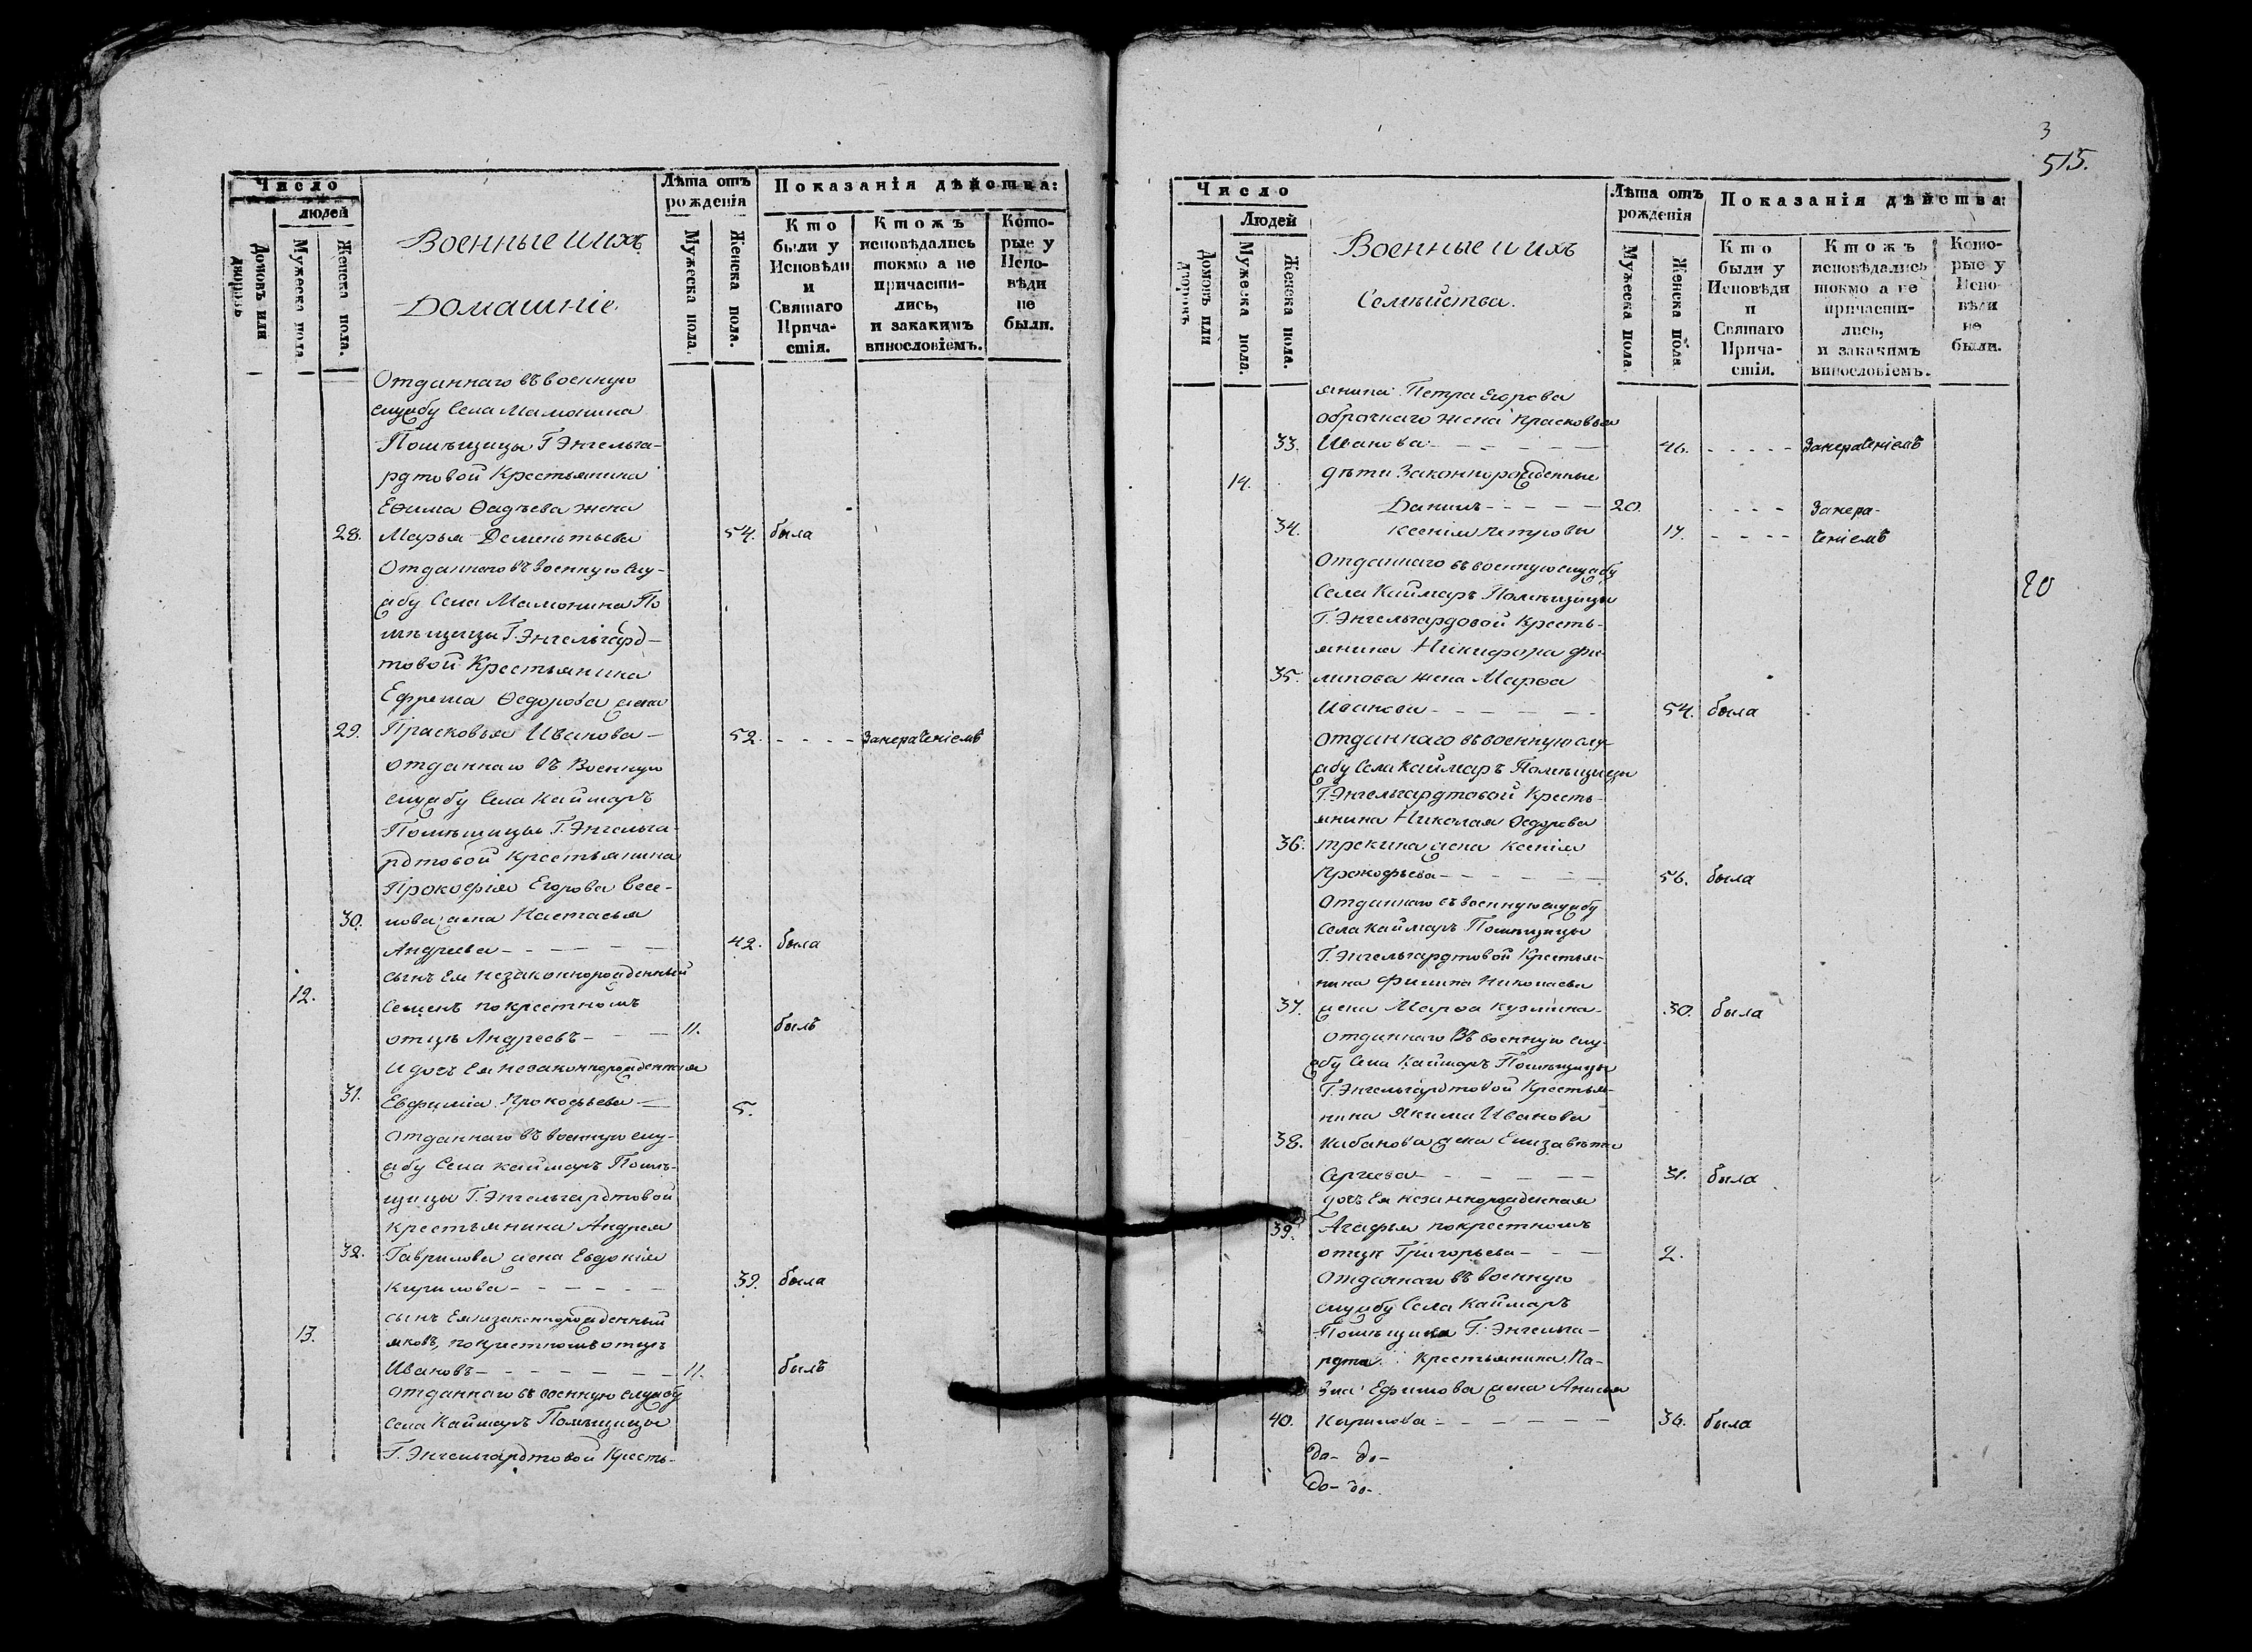 Число
людей
Домовъ или дворовъ
Мужеска пола
Женска пола.
Военные и ихъ
Домашніе.
Лѣта отъ
рожденія
Мужеска пола.
Женска пола.
Показанія дѣйства:
Кто
были у
Исповѣди
и
Святаго
Прича-
стія.
Ктожъ
исповѣдались
токмо а не
причасти-
лись,
и закакимъ
винословіемъ.
Кото-
рые у
Испо-
вѣди
не
были.
Отданнаго въ военную
службу Села Мамонина
Помѣщицы Г. Энгельга-
рдтовой Крестьянина
Еѳима Ѳадѣева жена
28. Марья Деменьтьева 54. была
Отданнаго въ военную слу-
жбу Села Мамонина По
мѣщицы Г. Энгельгард-
товой Крестьянина
Ефрема Ѳедорова жена
29. Прасковья Иванова - 52. - - - - Занераченіемъ
Отданнаго въ Военную
службу Села Каймаръ
Помѣщицы Г. Энгельга-
рдтовой Крестьянина
Прокофія Егорова Весе-
30. лова жена Настасья
Андреева - - - - - 42. была
сынъ Ея незаконнорожденный
12. Семенъ по крестномъ
отцѣ Андреевъ - - - 11. былъ
И дочь Ея незаконнорожденная
31. Евфимія Прокофьева - 5.
Отданнаго въ военную слу-
жбу Села Каймаръ Помѣ-
щицы Г. Энгельгардтовой
Крестьянина Андрея
32. Гаврилова жена Евдокія
Кирилова - - - - - - 39. была
сынъ Ея незаконнорожденный
13. Яковъ, по крестномъ отцѣ
Ивановъ - - - - - - 11. былъ
Отданнаго въ военную службу
Села Каймаръ Помѣщицы
Г. Энгельгардтовой Кресть-
3
515.
Число
Людей
Домовъ или дворовъ
Мужеска пола.
Женска пола.
Военные и ихъ
Семѣйства.
Лѣта отъ
рожденія
Мужеска пола.
Женска пола
Показанія дѣйства:
Кто
были у
Исповѣди
и
Святаго
Прича-
стія.
Ктожъ
исповѣдались
токмо а не
причасти-
лись,
и закакимъ
винословіемъ.
Кото-
рые у
Испо-
вѣди
не
были.
янина Петра Егорова
оброчнаго жена Прасковья
33. Иванова - - - - - - 46. - - - - - Занераченіемъ
14. дѣти Законнорожденные
Данилъ - - - - - 20. - - - - Занера-
34. Ксенія Петровы 17. - - - - ченіемъ
Отданнаго въ военную службу
Села Каймаръ Помѣщицы
20
Г. Энгельгардовой Кресть-
янина Никифора Фи-
35. липова жена Марѳа
Иванова - - - - - - 54. была
Отданнаго въ военную слу-
жбу Села Каймаръ Помѣщицы
Г. Энгельгардтовой Кресть-
янина Николая Ѳедорова
36. жена Ксенія
Прокофьева - - - - - - 56. была
Отданнаго въ военную службу
Села Каймаръ Помѣщицы
Г. Энгельгардтовой Крестья-
нина Филипа Николаева
37. жена Марѳа Кузмина - 30. была
Отданнаго Въ военную слу-
жбу Села Каймаръ Помѣщицы
Г. Энгельгардтовой Крестья-
нина Якима Иванова
38. Кабанова жена Елизавѣта
Сергиева - - - - - - 31. была
дочь Ея незаннорожденная
39. Агафья по крестномъ
отцѣ Григорьева - - - 2.
Отданнаго въ военную
службу Села Каймаръ
Помѣщика Г. Энгельга-
рдта Крестьянина Па-
вла Ефимова жена Анисья
40. Кирилова - - - - - - 36. была
до- до-
до- до-